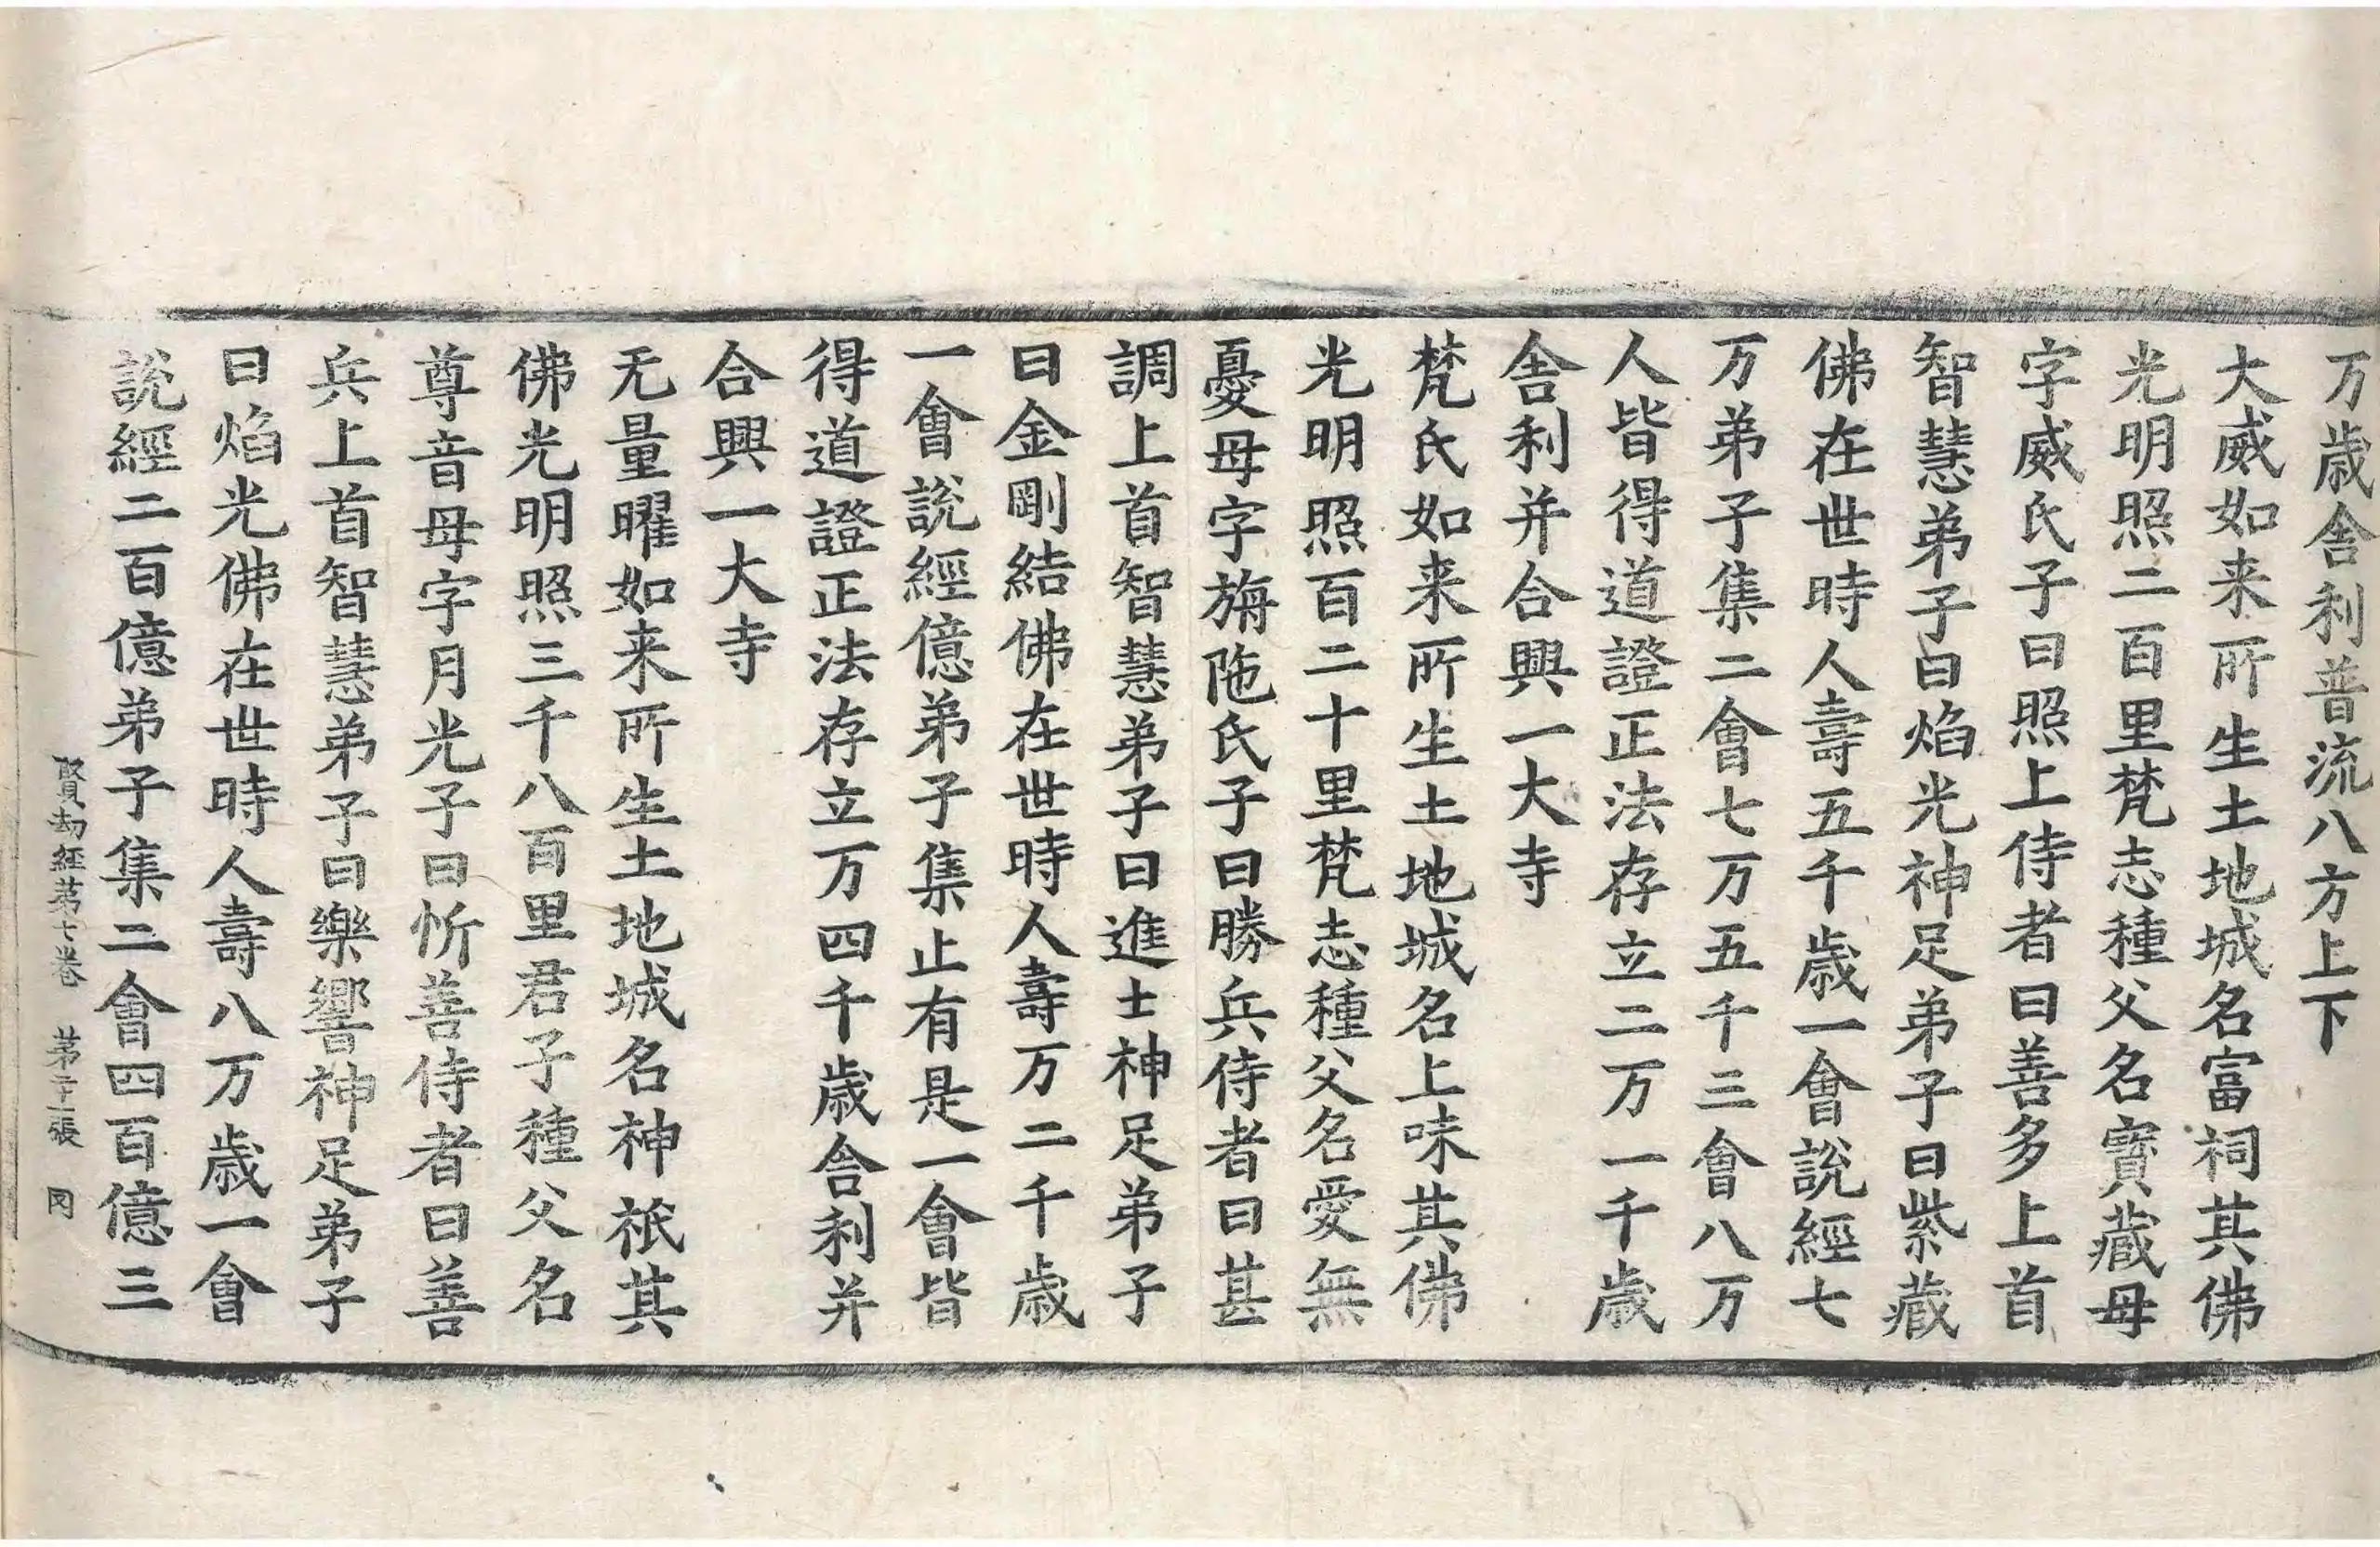 万歳舎利普流八方上下
大威如来所生土地城名富祠其佛
光明照二百里梵志種父名寳蔵母
字威氏子曰照上侍者曰善多上首
智慧弟子曰焰光神足弟子曰紫蔵
佛在世時人壽五千歳一會說經七
万弟子集二會七万五千三會八万
人皆得道證正法存立二万一千歳
舎利并合興一大寺
梵氏如来所生土地城名上味其佛
光明照百二十里梵志種父名愛無
憂母字旃陁氏子曰勝兵侍者曰甚
調上首智慧弟子曰進士神足弟子
曰金剛結佛在世時人壽万二千歳
一會說經億弟子集止有是一會皆
得道證正法存立万四千歳舎利并
合興一大寺
无量曜如来所生土地城名神祇其
佛光明照三千八百里君子種父名
尊音母字月光子曰忻善侍者曰善
兵上首智慧弟子曰樂響神足弟子
曰焰光佛在世時人壽八万歳一會
說經二百億弟子集二會四百億三
賢劫經苐七卷 苐二十張 罔